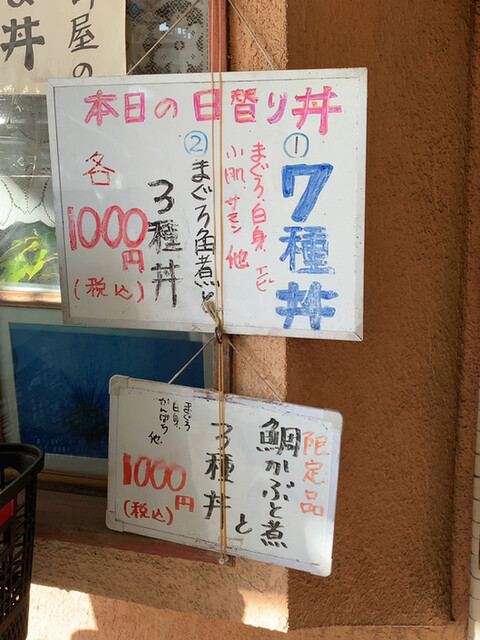 屋の
丼
本日の日替り丼
①
7種丼
まぐろ、白身、エビ
小肌、サモン他
②
まぐろ角煮と
3種丼
各
1000円
(税込)
限定品
鯛かぶと煮
と
3種丼
まぐろ
白身、
かんぱち他、
1000円
(税込)